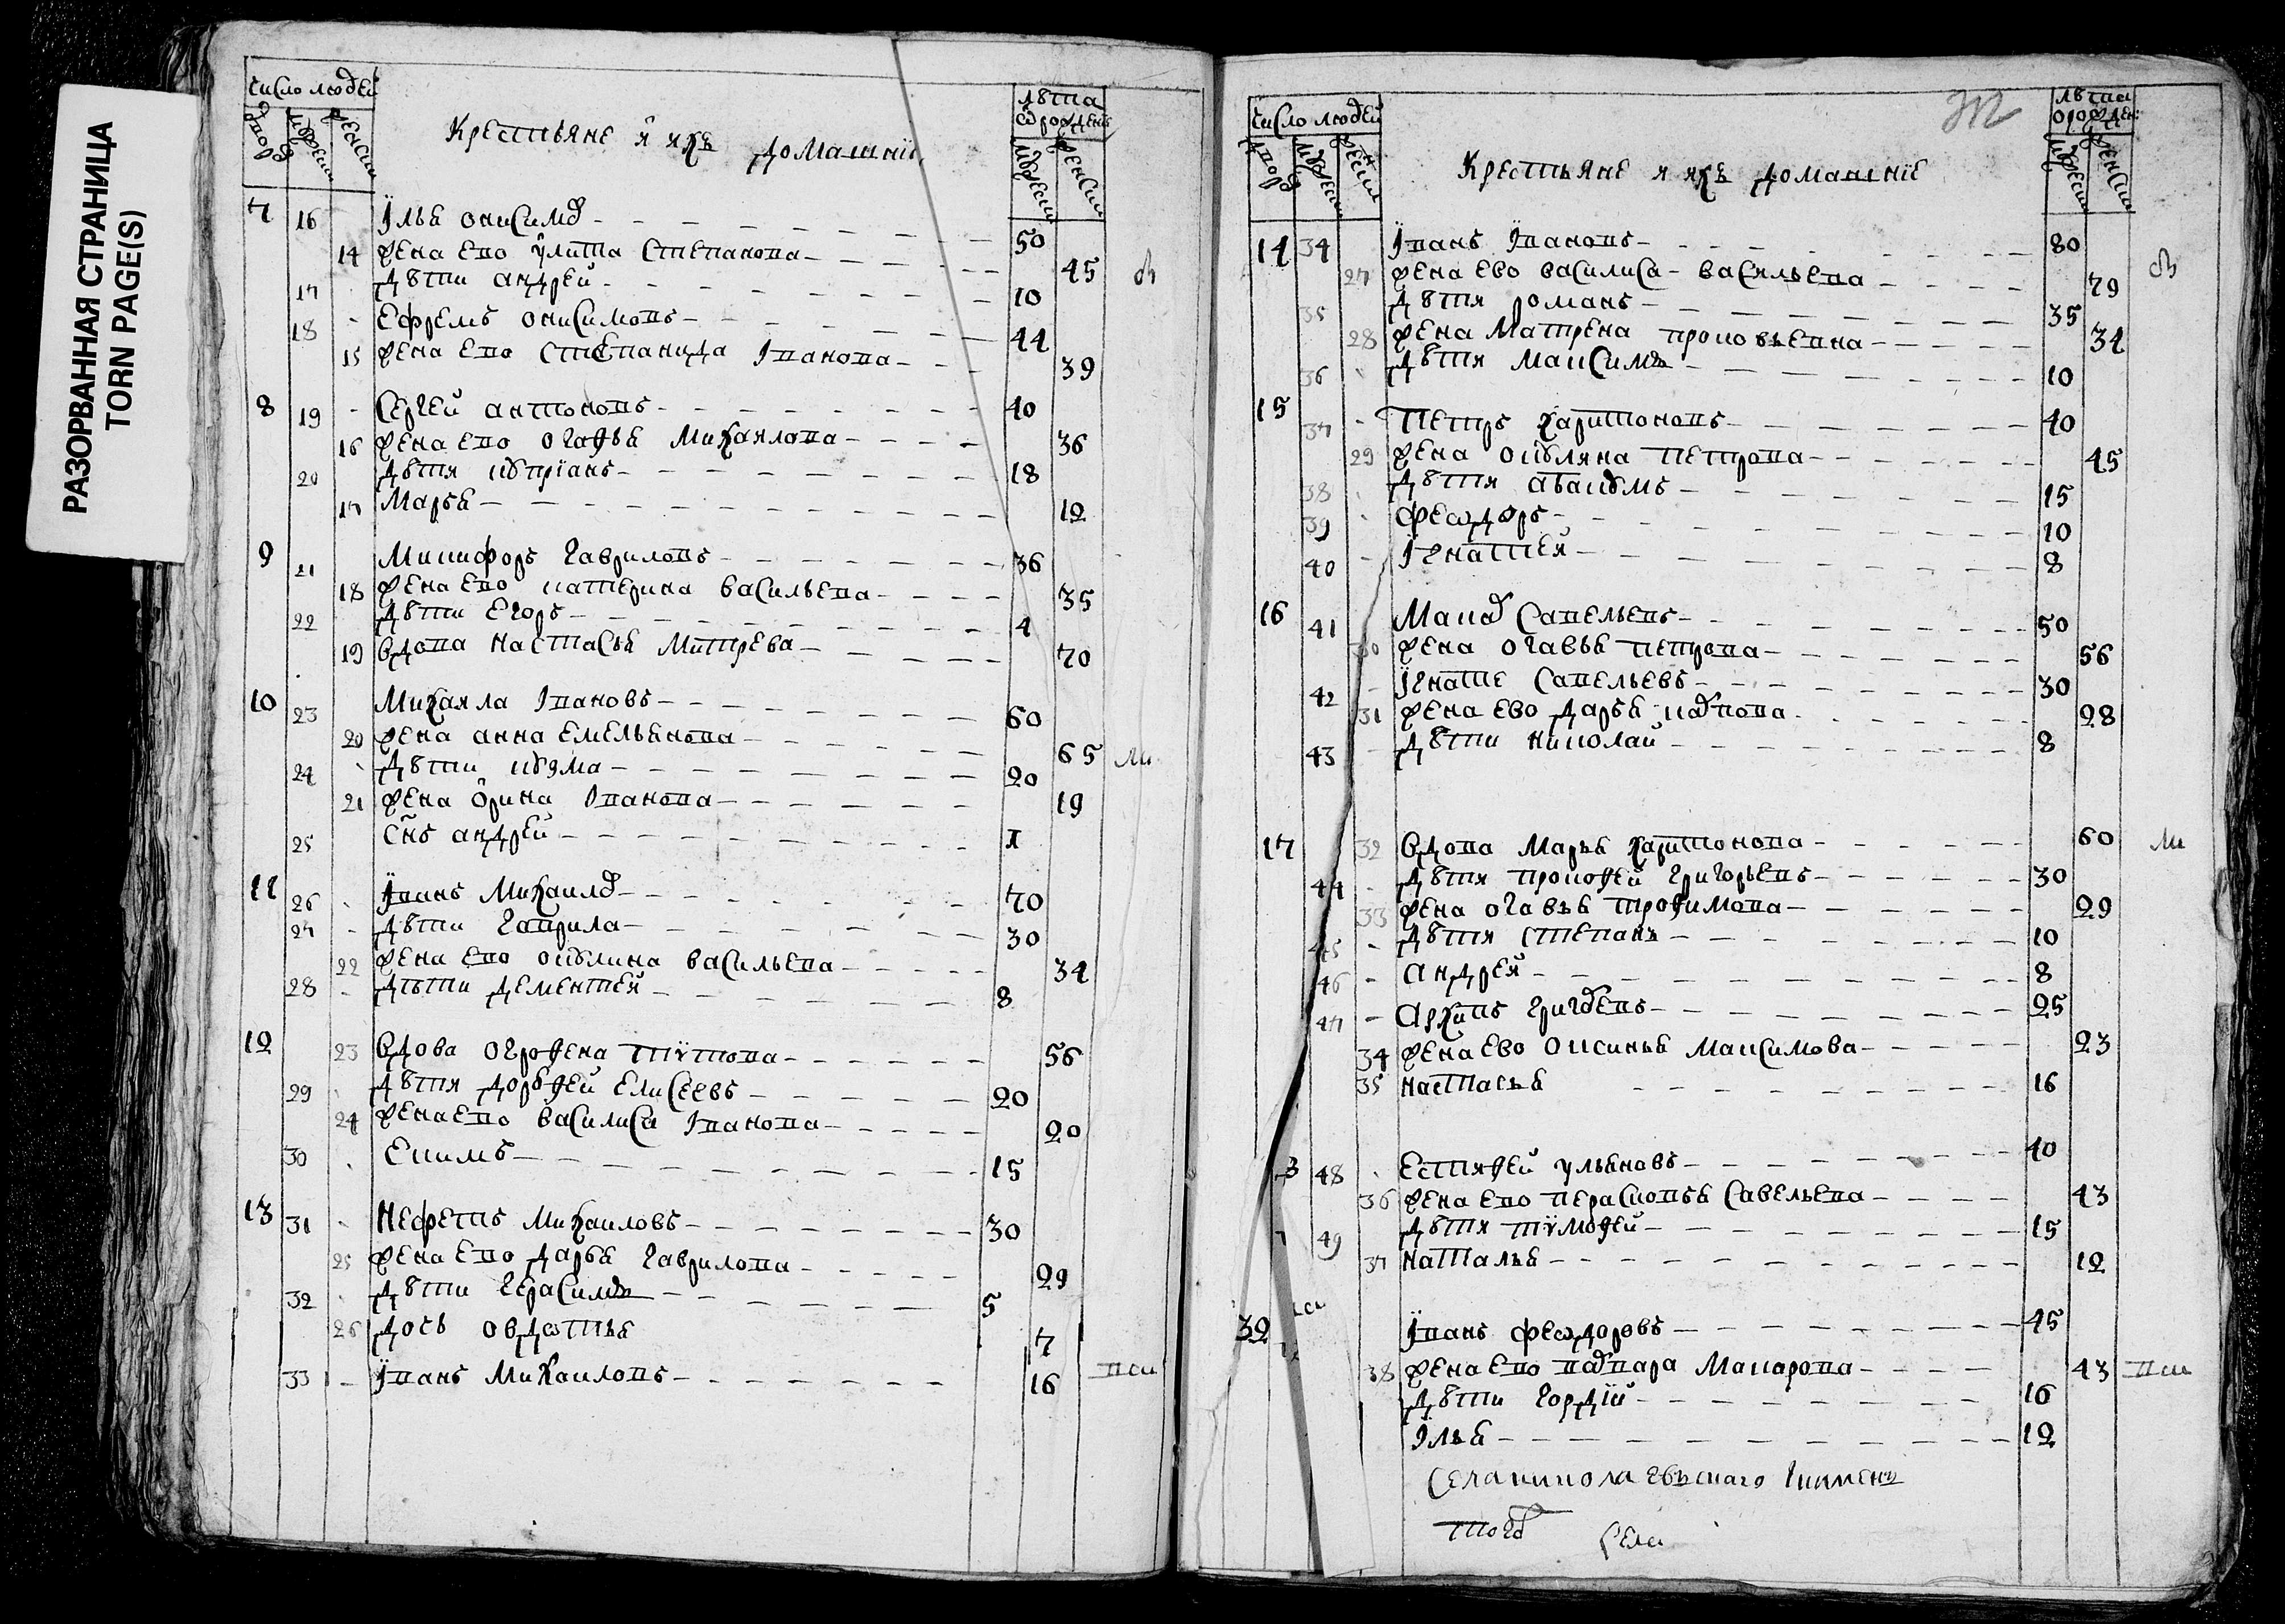 РАЗОРВАННАЯ СТРАНИЦА
TORN PAGE(S)
число людей
Крестьяне и ихъ домашнїе
лѣта
ѿ рожден
7 16 Їлья Онисимо 50
14 жена ево Улита Степанова 45
17 дѣти Андрей 10
18 Ефремъ Онисимовъ 44
15 жена ево Степанида Їванова 39
8 19 Сергей Антоновъ 40
16 жена ево Огафья Михаилова 36
20 дѣти Куприанъ 18
17 Марья 12
9 21 Микифоръ Гавриловъ 36
18 жена ево Катерина Васильева 35
22 дѣти Егоръ 4
19 вдова Настасья Митрева 70
10 23 Михаила Ївановъ 60
20 жена Анна Емельянова 65
24 дѣти Кузма 20
21 жена Орина Їванова 19
25 снъ Андрей 1
11 26 Їванъ Михаило 70
27 дѣти Гаврила 30
22 жена ево Окулина Васильева 34
28 дѣти Дементей 8
12 23 вдова Огрофена Тїтова 56
29 дѣти Дорофей Елисеевъ 20
24 жена ево Василиса Їванова 20
30 Екимъ 15
13 31 Нефетъ Михаиловъ 30
25 жена ево Дарья Гаврилова 29
32 дѣти Герасимъ 5
26 дочь Овдотья 7
33 Їванъ Михаиловъ 16
число людей
Крестьяне и ихъ домашнїе
лѣта
о рожден
14 34 Їванъ Ївановъ 80
27 жена ево Василиса Васильева 79
35 дѣти Романъ 35
28 жена Матрена Прокофьевна 34
36 дѣти Максимъ 10
15 37 Петръ Харитоновъ 40
29 жена Окуляна Петрова 45
38 дѣти Абакумъ 15
39 Феѡдоръ 10
40 Їгнатей 8
16 41 Савельевъ 50
30 жена Огавья Петрова 56
42 Їгнате Савельевъ 30
31 жена ево Дарья 28
43 дѣти Николай 8
17 32 вдова Марья Харитонова 60
44 дѣти Прокофей Григорьевъ 30
33 жена Огавья Трофимова 29
45 дѣти Степанъ 10
46 Андрей 8
47 Архипъ 25
34 жена ево Оксинья Максимова 23
35 Настасья 16
48 Естифей Ульяновъ 40
36 жена ево Перасковья Савельева 43
49 дѣти Тїмофей 15
37 Наталья 12
32 Їванъ Феѡдоровъ 45
38 жена ево Макарова 43
дѣти Гордїй 16
Їлья 12